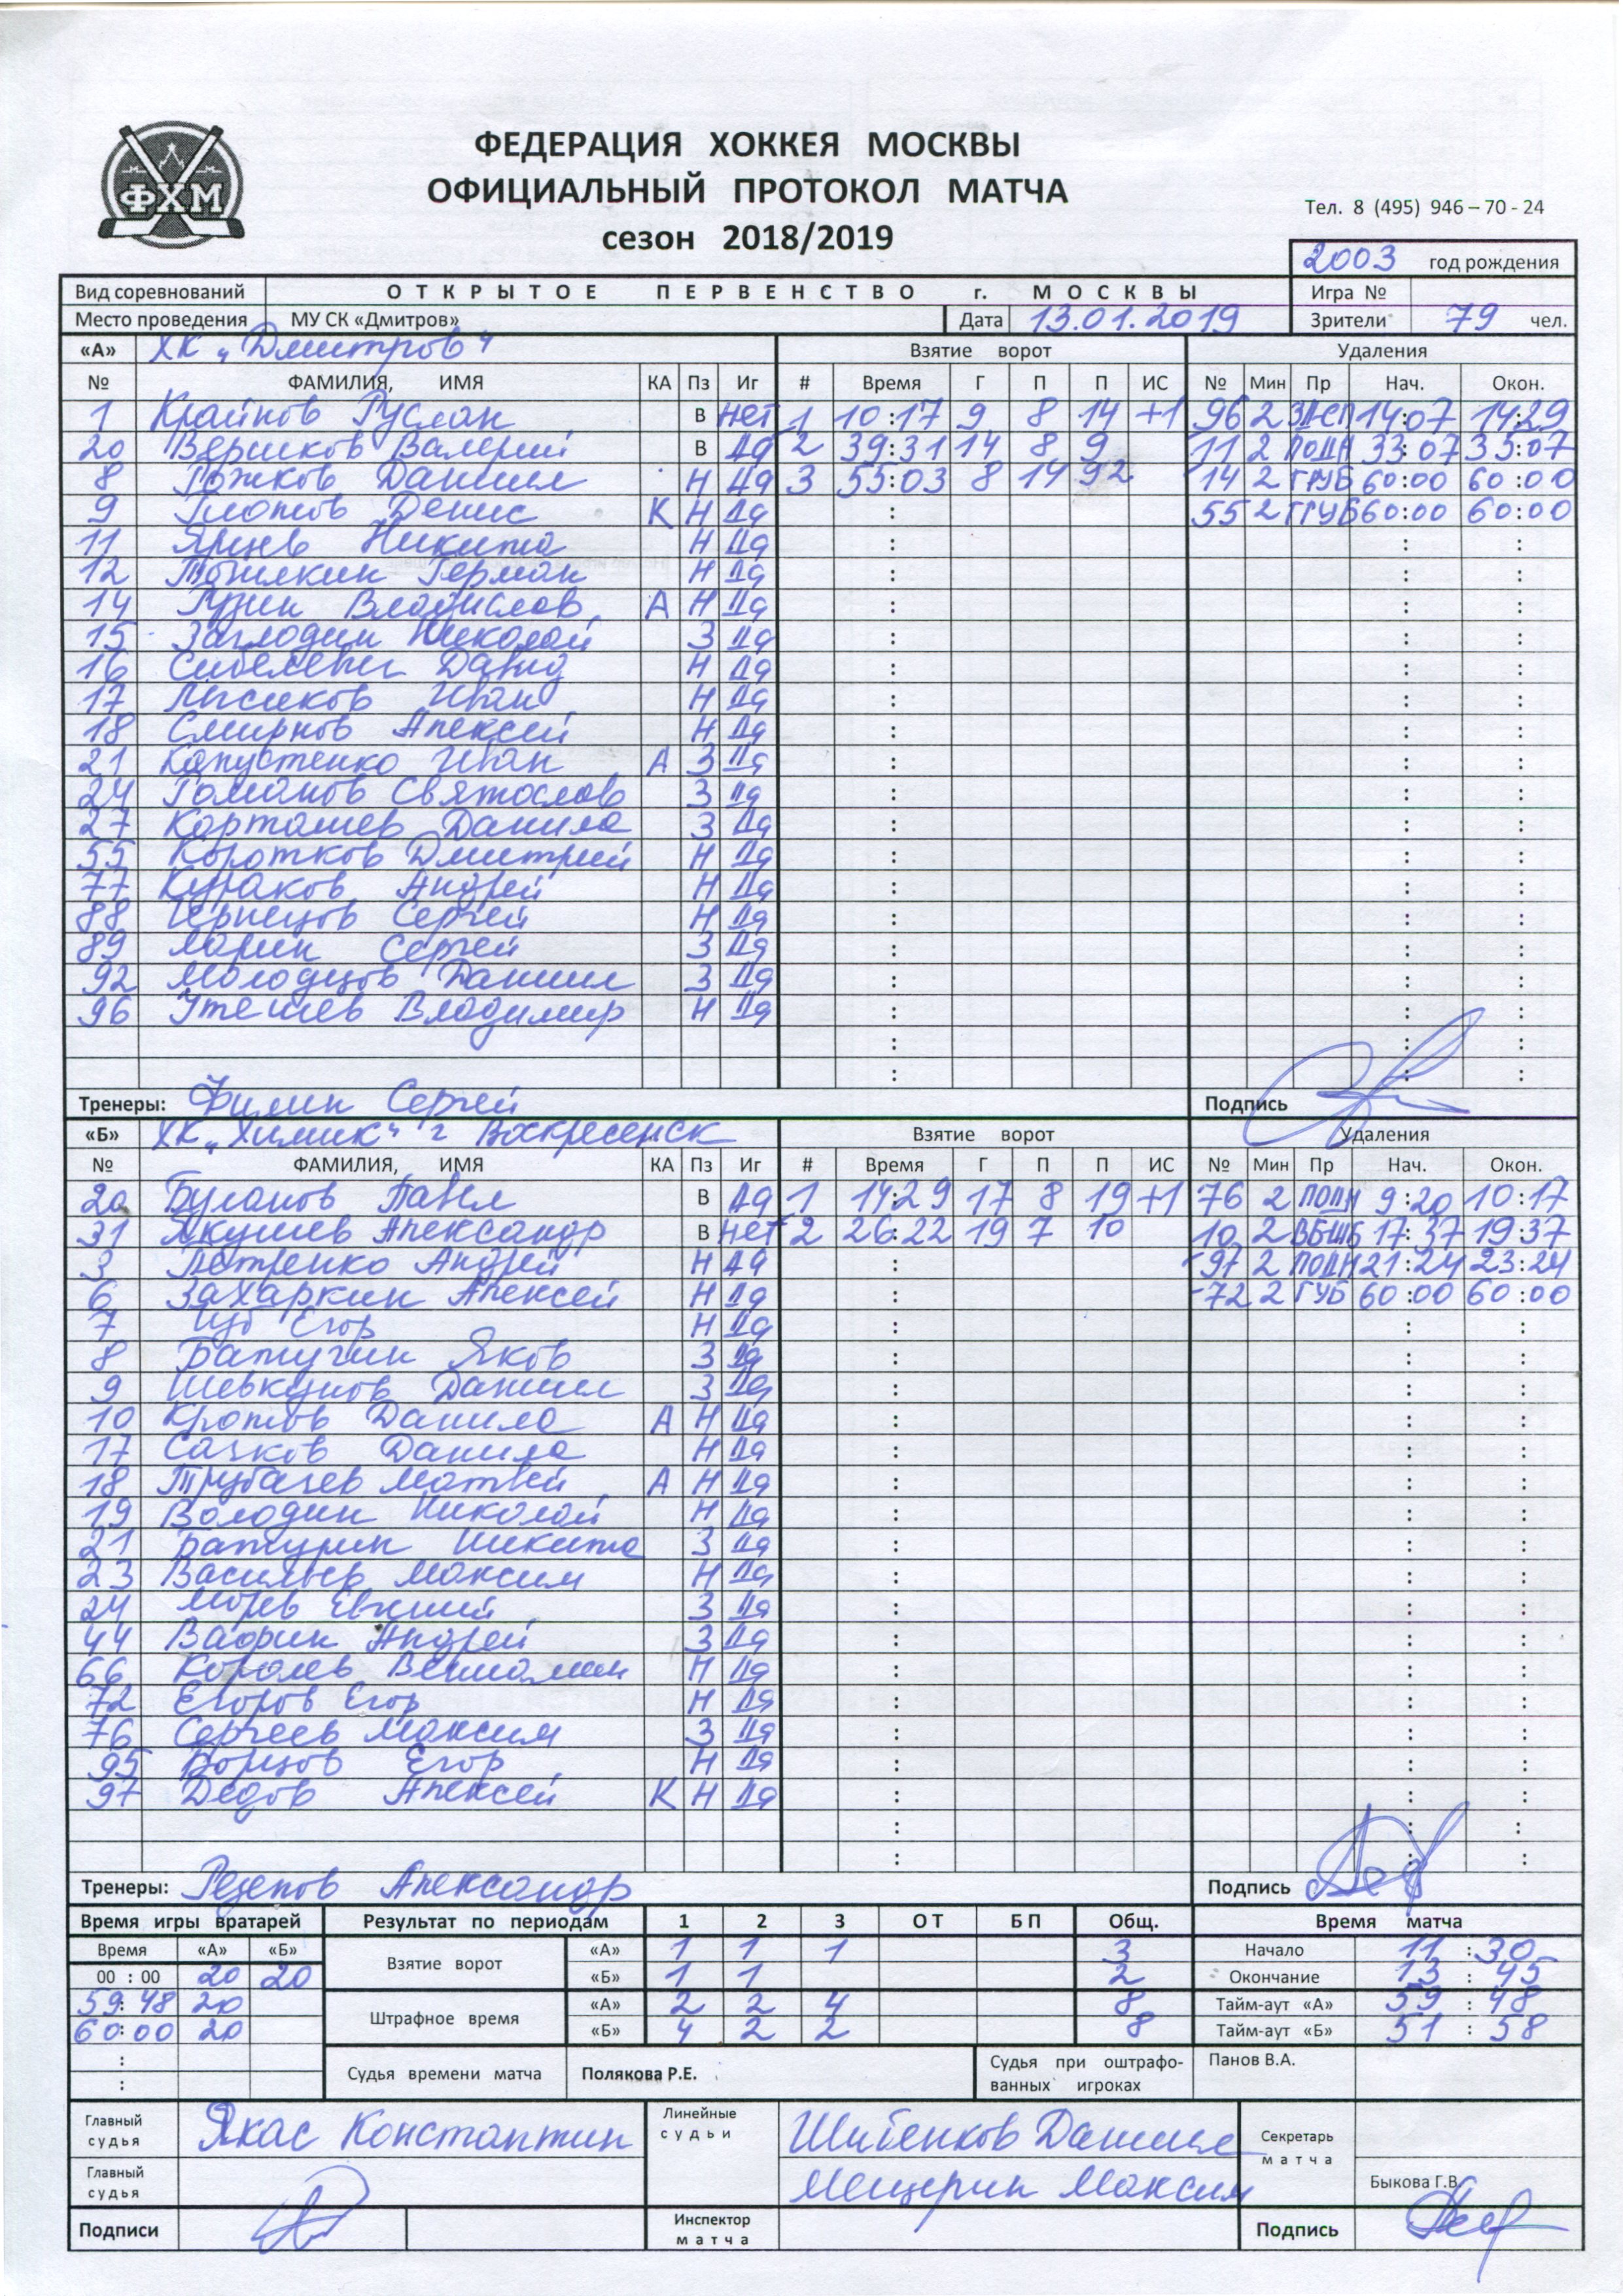 ФЕДЕРАЦИЯ ХОККЕЯ МОСКВЫ
ОФИЦИАЛЬНЫЙ ПРОТОКОЛ МАТЧА
сезон 2018/2019
ФХМ
Тел. 8 (495) 946 – 70 - 24
2003 год рождения
Вид соревнований ОТКРЫТОЕ ПЕРВЕНСТВО г. МОСКВЫ Игра №
Место проведения МУ СК «Дмитров» Дата 13.01.2019 Зрители 79 чел.
«А» ХК „Дмитров“ Взятие ворот Удаления
№ ФАМИЛИЯ, ИМЯ КА Пз Иг # Время Г П П ИС № Мин Пр Нач. Окон.
1 Крайнов Руслан В нет 1 10:17 9 8 14 +1 96 2 14:07 14:29
20 Вершков Валерий В да 2 39:31 14 8 9 11 2 ПОДН 33:07 35:07
8 Рожков Даниил Н да 3 55:03 8 14 92 14 2 ГРУБ 60:00 60:00
9 Глотов Денис К Н да : 55 2 ГРУБ 60:00 60:00
11 Ярцев Никита Н да : : :
12 Тошлкин Герман Н да : : :
14 Рузин Владислав А Н да : : :
15 Заглодин Николай З да : : :
16 Давид Н да : : :
17 Лысиков Иван Н да : : :
18 Смирнов Алексей Н да : : :
21 Капустенко Иван А З да : : :
24 Романов Святослав З да : : :
27 Карташев Данила З да : : :
55 Коротков Дмитрий Н да : : :
77 Кураков Андрей Н да : : :
88 Чернецов Сергей Н да : : :
89 Марин Сергей З да : : :
92 Молодцов Даниил З да : : :
96 Утешев Владимир Н да : : :
: : :
: : :
Тренеры: Филин Сергей Подпись
«Б» ХК „Химик“ г Воскресенск Взятие ворот Удаления
№ ФАМИЛИЯ, ИМЯ КА Пз Иг # Время Г П П ИС № Мин Пр Нач. Окон.
20 Буланов Павел В да 1 14:29 17 8 19 +1 76 2 ПОДН 9:20 10:17
31 Якушев Александр В нет 2 26:22 19 7 10 10 2 ВБШБ 17:37 19:37
3 Петренко Андрей Н да : 97 2 ПОДН 21:24 23:24
6 Захаркин Алексей Н да : 72 2 ГУБ 60:00 60:00
7 Чуб Егор Н да : : :
8 Батугин Яков З да : : :
9 Шевкунов Даниил З да : : :
10 Кротов Данила А Н да : : :
17 Сачков Данила Н да : : :
18 Трубачев Матвей А Н да : : :
19 Володин Николай Н да : : :
21 Батурин Никита З да : : :
23 Васильев Максим Н да : : :
24 Морев Евгений З да : : :
44 Ваврин Андрей З да : : :
66 Королев Вениамин Н да : : :
72 Егоров Егор Н да : : :
76 Сергеев Максим З да : : :
95 Борцов Егор Н да : : :
97 Дедов Алексей К Н да : : :
: : :
: : :
Тренеры: Резепов Александр Подпись
Время игры вратарей Результат по периодам 1 2 3 ОТ БП Общ. Время матча
Время «А» «Б» Взятие ворот «А» 1 1 1 3 Начало 11 : 30
00 : 00 20 20 «Б» 1 1 2 Окончание 13 : 45
59:48 20 Штрафное время «А» 2 2 4 8 Тайм-аут «А» 59 : 48
60:00 20 «Б» 4 2 2 8 Тайм-аут «Б» 51 : 58
:
:
Судья времени матча Полякова Р.Е. Судья при оштрафо-ванных игроках Панов В.А.
Главный судья Якас Константин Линейные судьи Шибенков Даниил Секретарь матча
Главный судья Мещерин Максим Быкова Г.В.
Подписи Инспектор матча Подпись